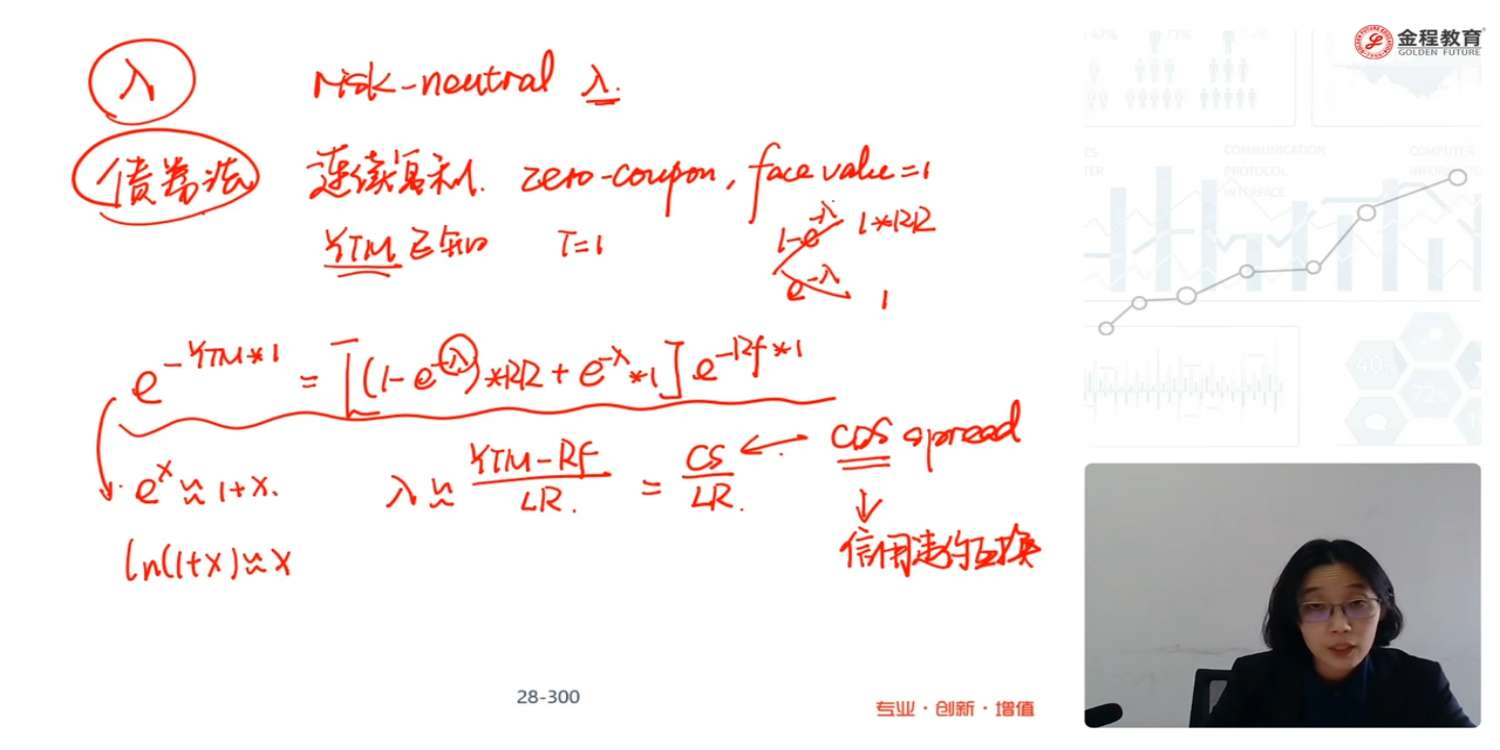 λ risk-neutral λ.
债券法 连续复利. zero-coupon, face value=1
YTM 已知 T=1
1-e^-λ 1*RR
e^-λ 1
e^-YTM*1 = [(1-e^-λ)*RR + e^-λ*1] e^-Rf*1
e^x ≈ 1+x. λ ≈ YTM-RF/LR. = CS/LR. ← CDS spread
↓
信用违约互换
ln(1+x)≈x
28-300
专业·创新·增值
金程教育
GOLDEN FUTURE
COMMUNICATION
PROTOCOL
INTERFACE
COMPUTER
40%
72%